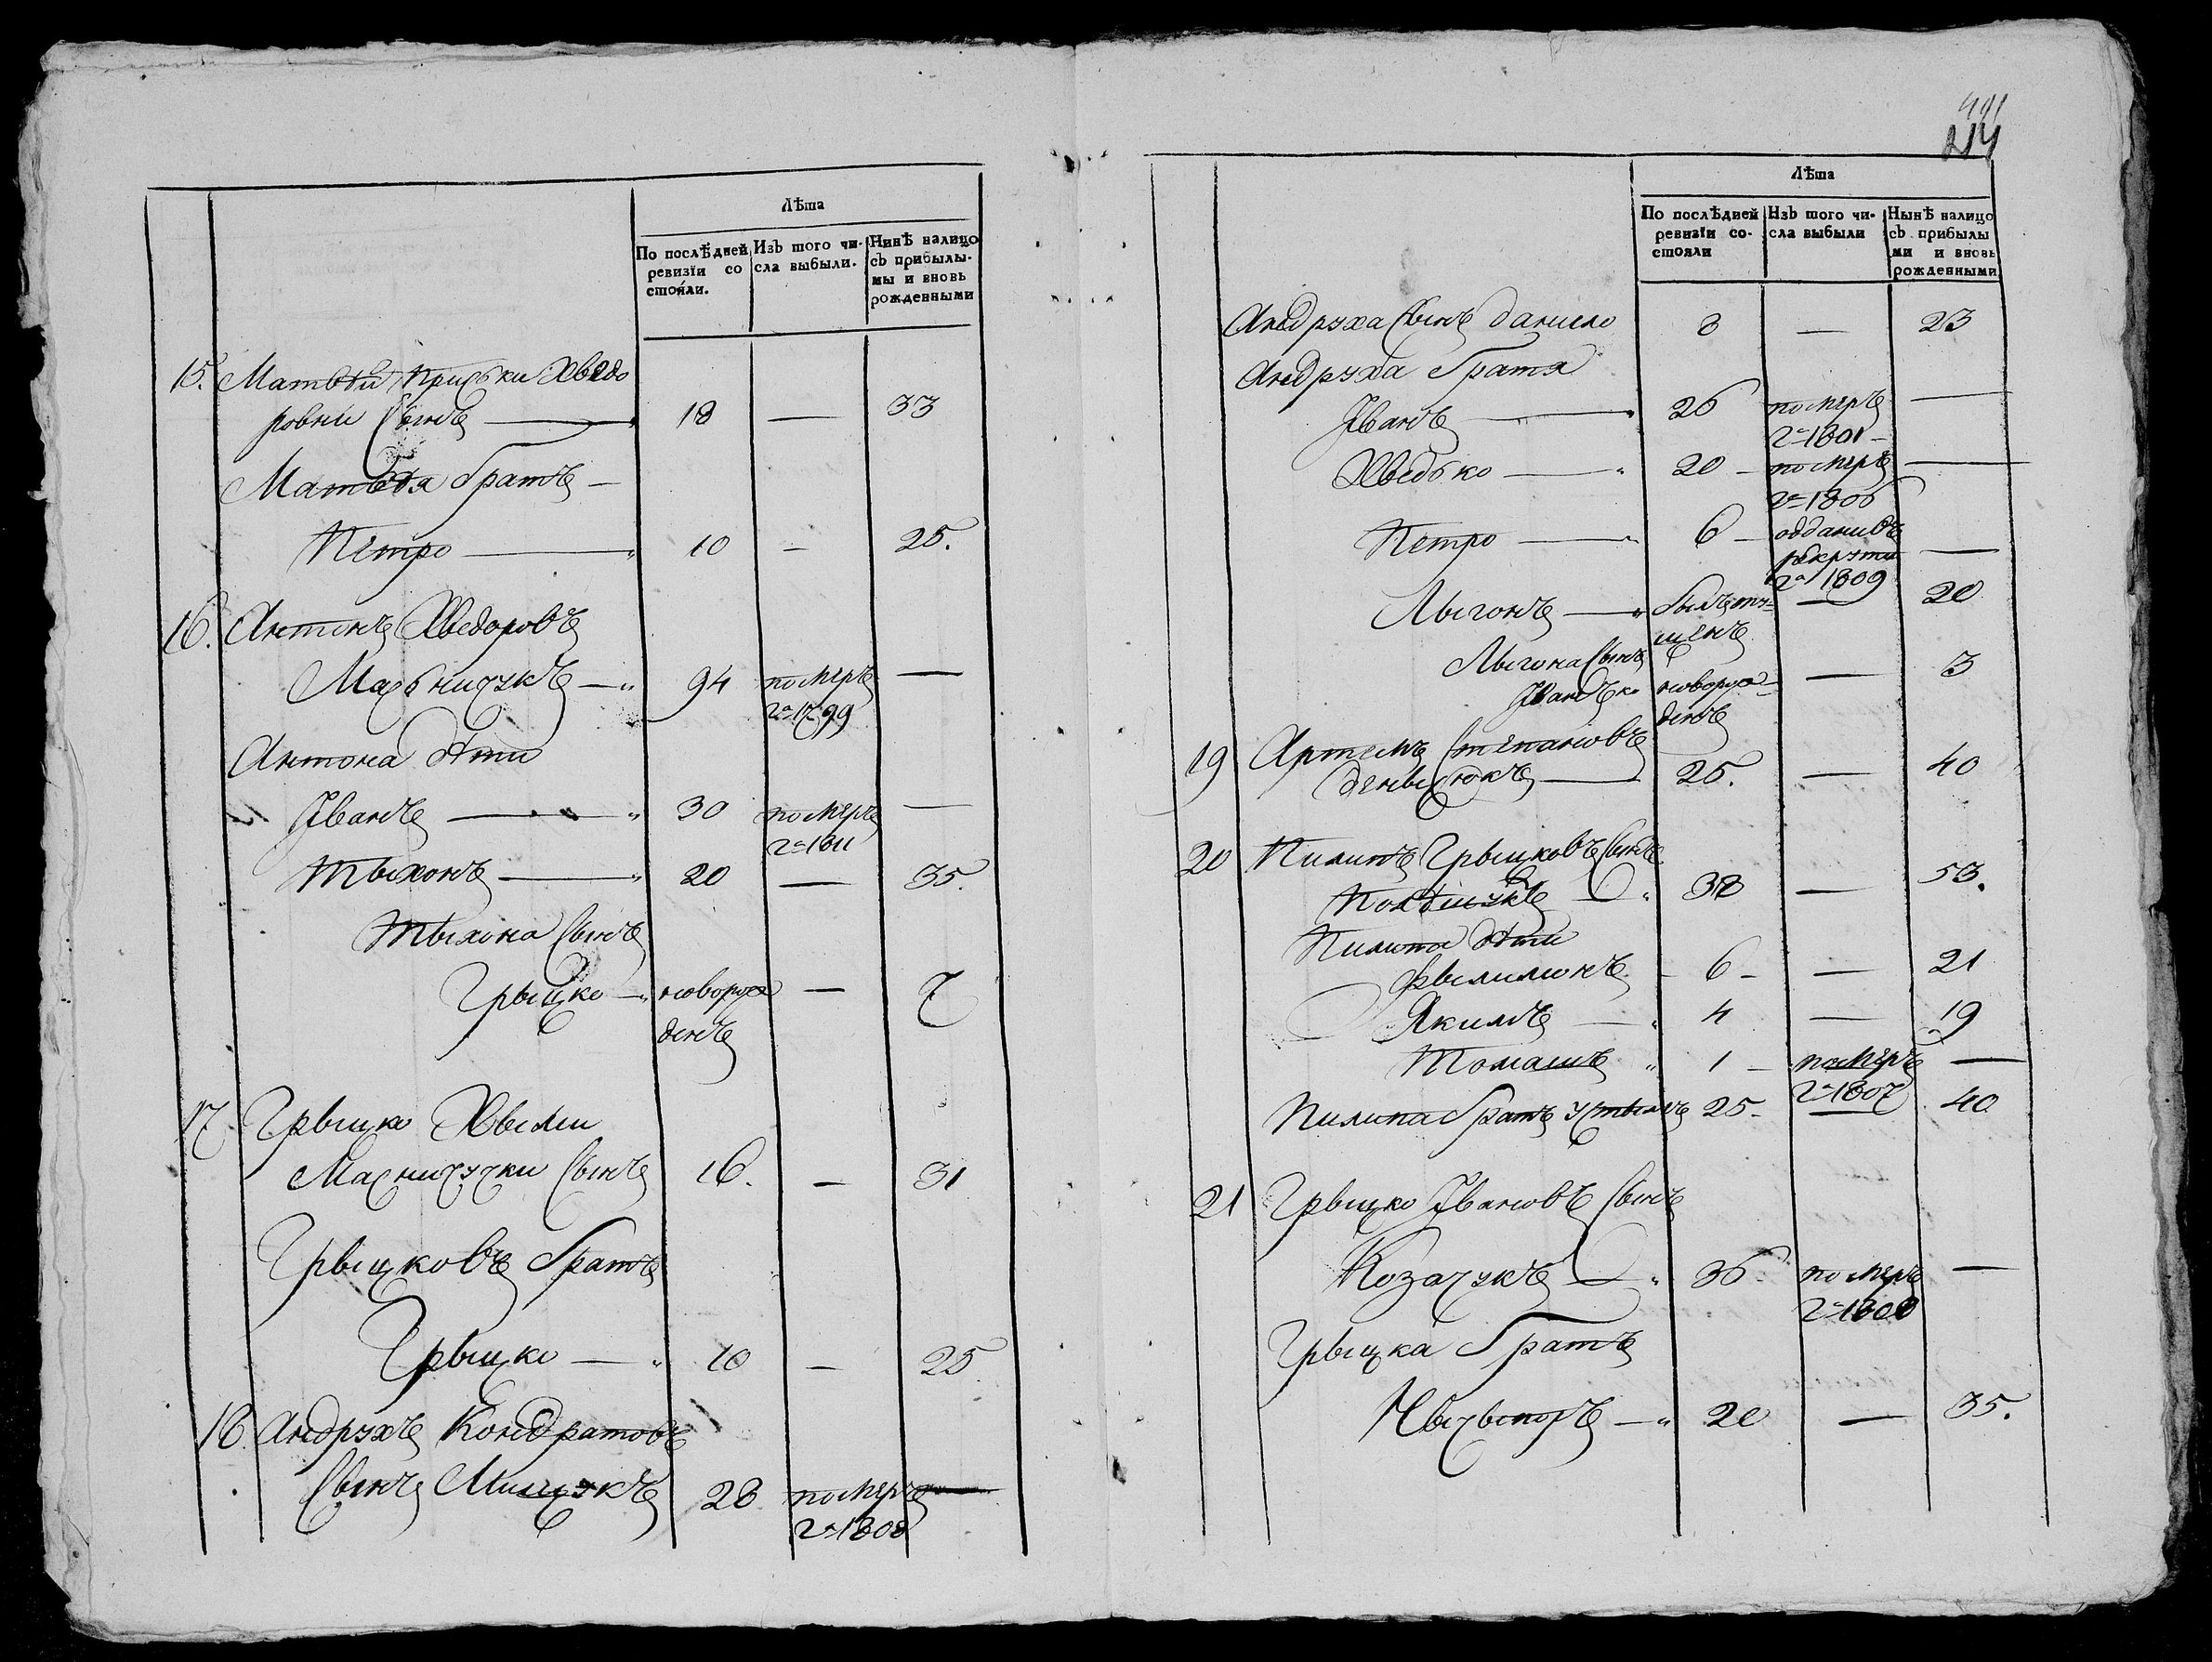 Лѣта
По послѣдней ревизіи со стояли.
Изъ того чи- сла выбыли.
Нинѣ налицо съ прибылы- мы и вновь рожденными
15. Матвѣй Приськи Хведо
ровни Сынъ — 18 — 33
Матвѣя братъ —
Петро — 10 — 25.
16. Антонъ Хведоровъ
94 померъ —
г. 1799
Антона дѣти
Іванъ — 30 померъ —
г. 1811
Тыхонъ — 20 — 35.
Тыхона Сынъ
Грыцко — новорож — 7
денъ
17 Грыцко Хвыми
Сынъ 16. — 31
Грыцковъ братъ
Грыцко — 10 — 25
18. Андрухъ Кондратовъ
Сынъ Мищукъ 28 померъ —
г. 1808
214
Лѣта
По послѣдней ревизіи со- стояли
Изъ того чи- сла выбыли
Нынѣ налицо съ прибылы ми и вновь рожденными
Андруха Сынъ данило 8 — 23
Андруха братя
Іванъ — 26 померъ —
г. 1801 —
Хведько — 20 — померъ —
г. 1806
Петро — 6 — отданъ въ
рекруты —
г. 1809
— 20
Сынъ
Іванъко новорож — 3
денъ
19 Артемъ Степановъ
— 25. — 40
20 Пилипъ Грыцковъ Сынъ
Полѣщукъ — 38 — 53.
Пилипа дѣти
Фылимонъ — 6 — — 21
Якимъ — 4 — 19
Томашъ 1 — померъ —
г. 1807
Пилипа братъ Устымъ 25 — 40
21 Грыцко Івановъ Сынъ
Козачукъ — 36 померъ —
г. 1808
Грыцка братъ
Нычыпоръ — 20 — 35.